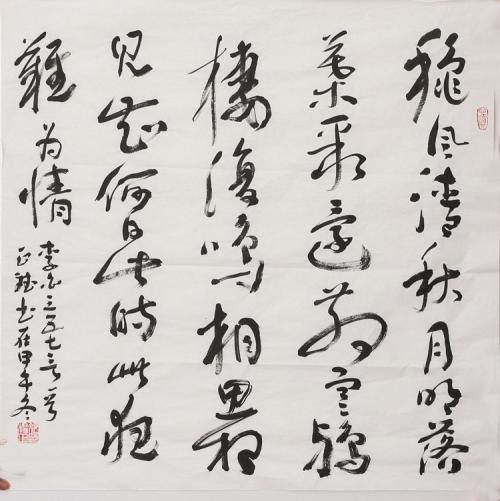 穐风清秋月明落
葉聚還散寒鴉
棲復鳴相思相
見知何日此時此夜
難为情
李白三五七言
书在甲午冬